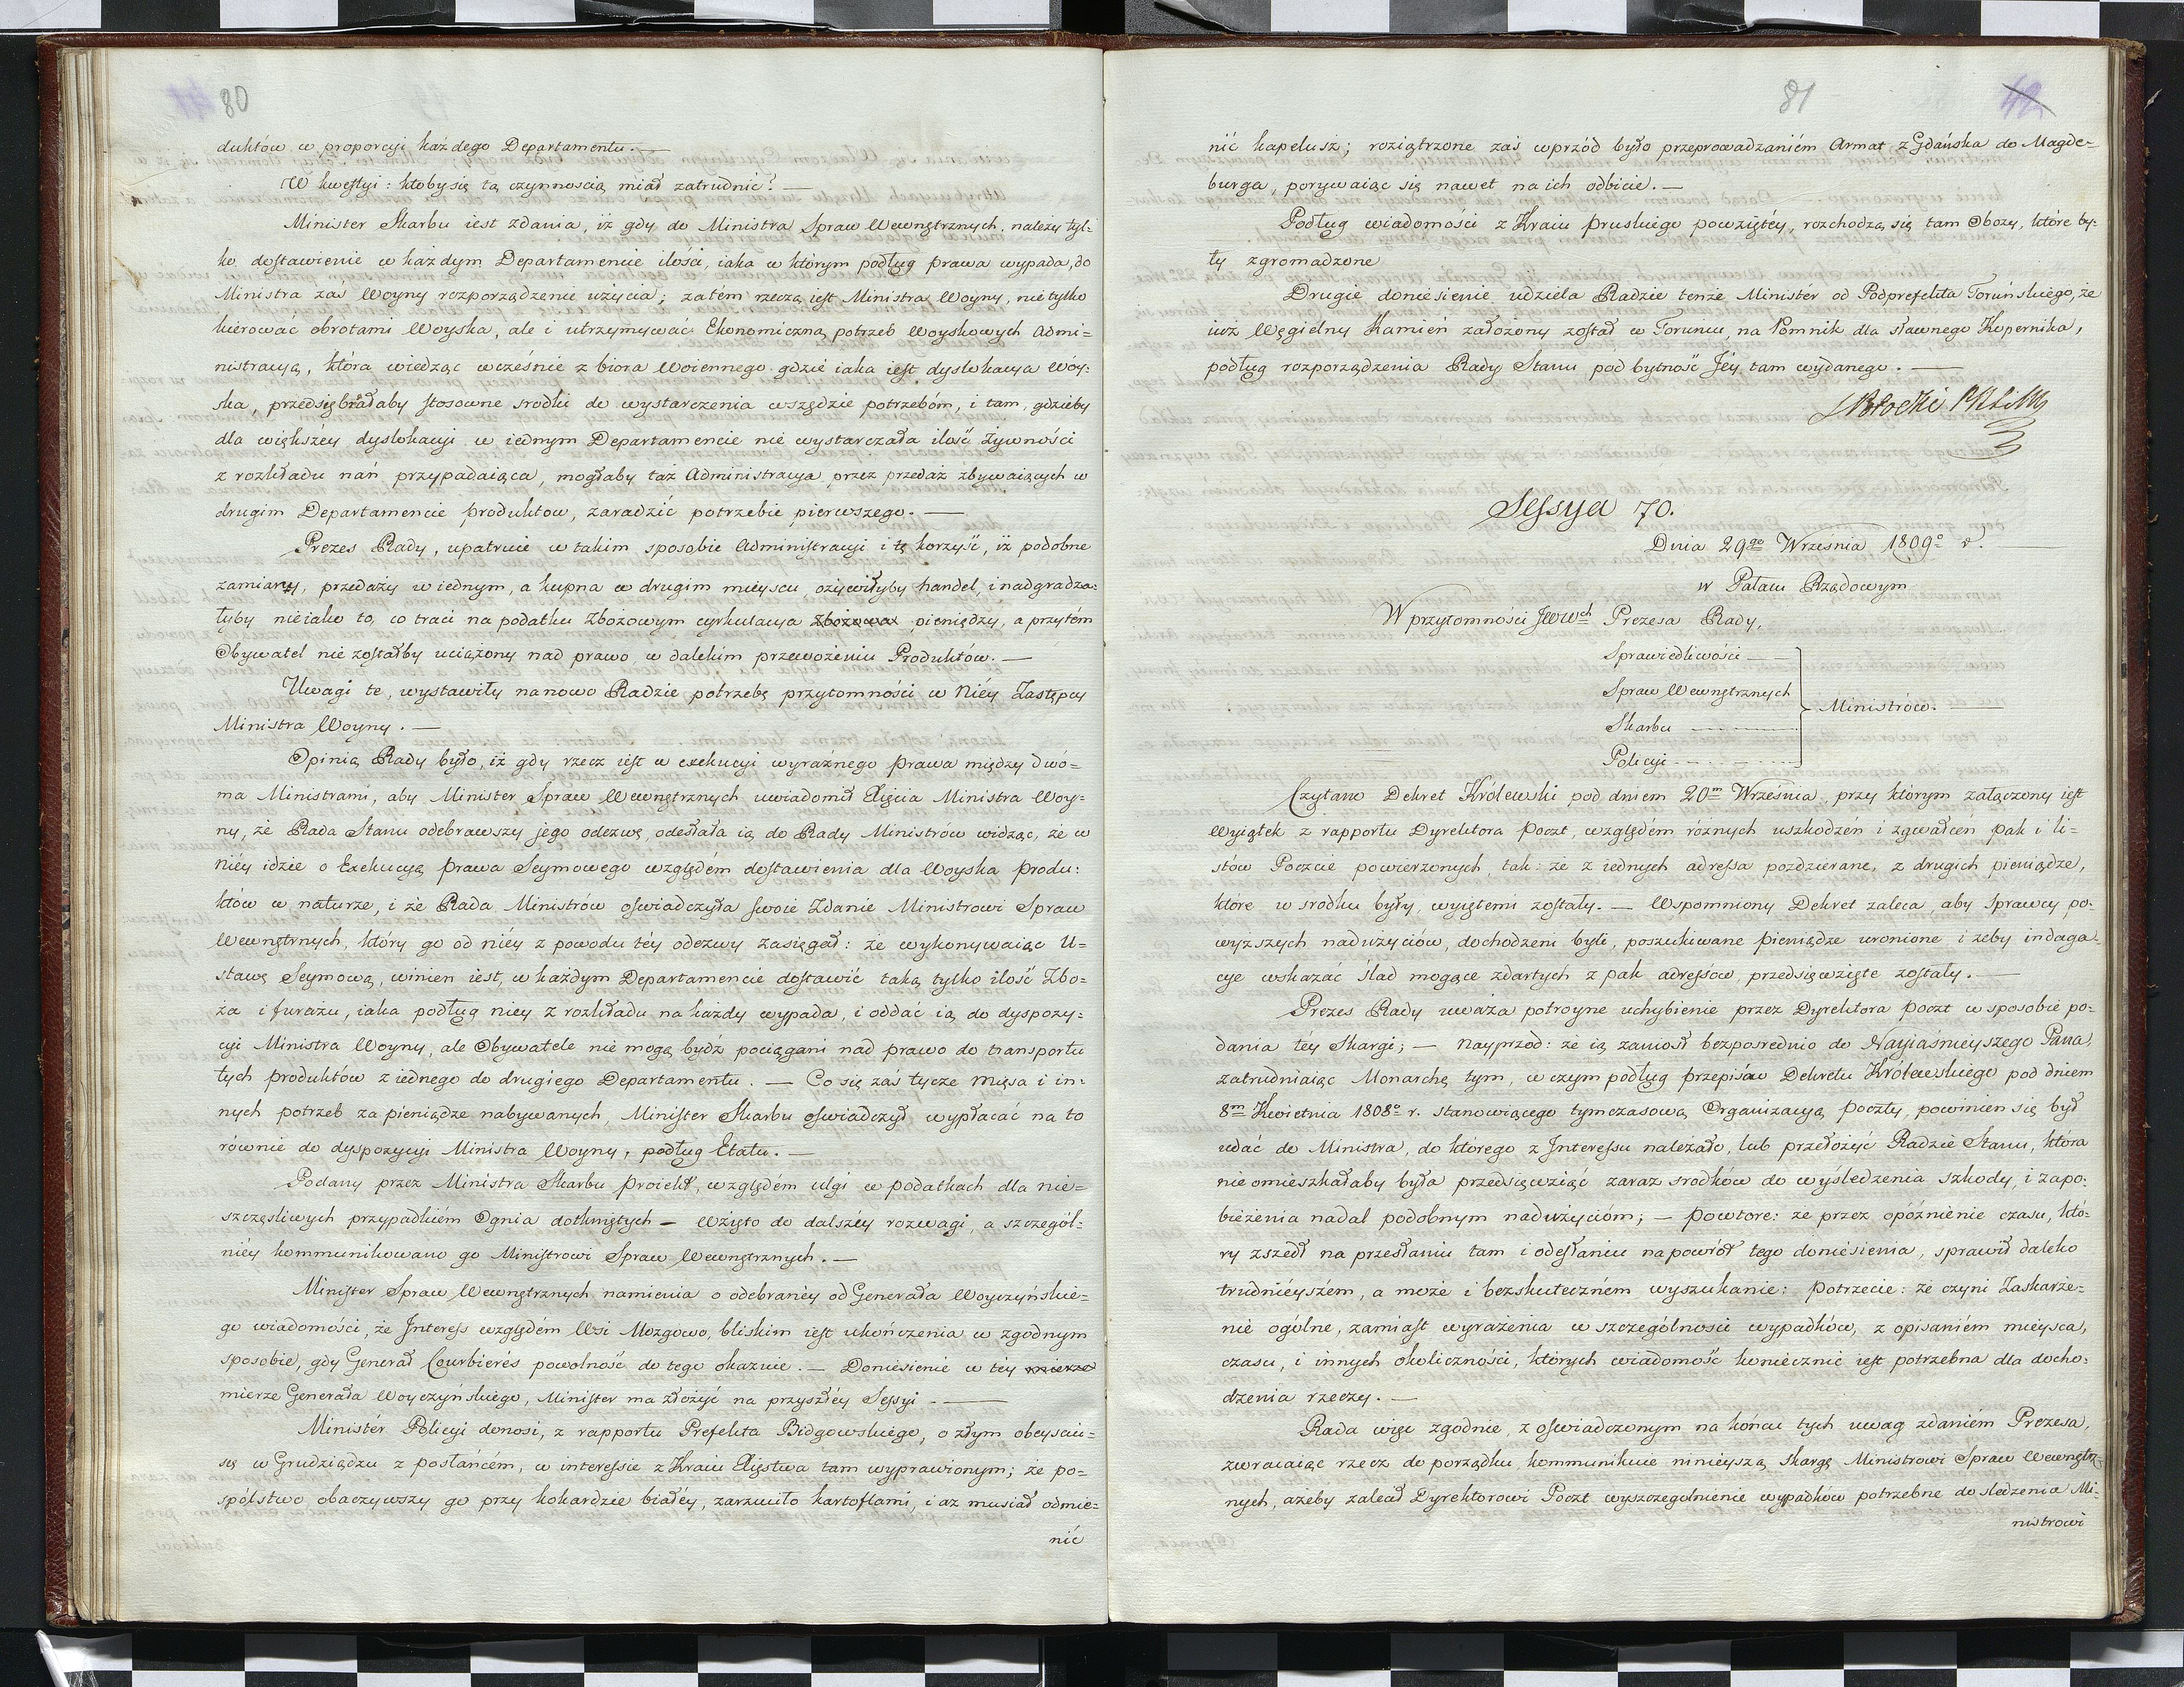 80
duktów w proporcyi każdego Departamentu. —
W kwestyi: ktoby się tą czynnością miał zatrudnić? —
Minister Skarbu iest zdania, iż gdy do Ministra Spraw Wewnętrznych, należy tyl=
ko dostawienie w każdym Departamencie ilości, iaka w którym podług prawa wypada, do
Ministra zaś Woyny rozporządzenie użycia; zatém rzeczą iest Ministra Woyny, nie tylko
kierować obrotami Woyska, ale i utrzymywać Ekonomiczną potrzeb Woyskowych Admi=
nistracyą, która wiedząc wcześnie z biora Woiennego gdzie iaka iest dyslokacya Woy=
ska, przedsiębrałaby stosowne srodki do wystarczenia wszędzie potrzebóm, i tam, gdzieby
dla większéy dyslokacyi w iednym Departamencie nie wystarczała ilość żywności
z rozkładu nań przypadaiąca, mogłaby taż Administracya przez przedaż zbywaiących w
drugim Departamencie produktow, zaradzić potrzebie pierwszego. —
Prezes Rady, upatruie w takim sposobie Administracyi i tę korzyść, iż podobne
zamiany, przedaży w iednym, a kupna w drugim mieyscu, ożywiłyby handel, i nadgradza=
łyby nieiako to, co traci na podatku Zbożowym cyrkulacya zbożowa pieniędzy, a przytém
Obywatel nie zostałby uciążony nad prawo w dalekim przewożeniu Produktów. —
Uwagi te, wystawiły nanowo Radzie potrzebę przytomności w Niéy Zastępcy
Ministra Woyny. —
Opinią Rady było, iż gdy rzecz iest w exekucyi wyraźnego prawa między dwó=
ma Ministrami, aby Minister Spraw Wewnętrznych uwiadomił Xięcia Ministra Woy=
ny, że Rada Stanu odebrawszy jego odezwę, odesłała ią do Rady Ministrów widząc, że w
niéy idzie o Exekucyą prawa Seymowego względém dostawienia dla Woyska produ=
któw w naturze, i że Rada Ministrów oświadczyła swoie Zdanie Ministrowi Spraw
Wewnętrnych, który go od niéy z powodu téy odezwy zasięgał: że wykonywaiąc U=
stawę Seymową, winien iest, w każdym Departamencie dostawić taką tylko ilość Zbo=
ża i furażu, iaka podług niey z rozkładu na każdy wypada, i oddać ią do dyspozy=
cyi Ministra Woyny, ale Obywatele nie mogą bydź pociągani nad prawo do transportu
tych produktów z iednego do drugiego Departamentu. — Co się zaś tycze Mięsa i in=
nych potrzeb za pieniądze nabywanych, Minister Skarbu oświadczył wypłacać na to
równie do dyspozycyi Ministra Woyny, podług Etatu. —
Podany przez Ministra Skarbu proiekt, względém ulgi w podatkach dla nie=
szczęsliwych przypadkiém Ognia dotkniętych — Wzięto do dalszéy rozwagi, a szczegól=
niéy kommunikowano go Ministrowi Spraw Wewnętrznych. —
Minister Spraw Wewnętrznych namienia o odebranéy od Generała Woyczyńskie=
go wiadomości, że Interess względém Wsi Mozgowo, bliskim iest ukończenia w zgodnym
sposobie, gdy Generał Courbierés powolność do tego okazuie. — Doniesienie w téy mierze
mierze Generała Woyczyńskiego, Minister ma złożyć na przyszłéy Sessyi — —
Ministér Policyi donosi, z rapportu Prefekta Bidgowskiego, o złym obeyściu=
się w Grudziądzu z posłańcém, w interessie z Kraiu Xięstwa tam wyprawionym; że po=
spólstwo obaczywszy go przy kokardzie białéy, zarzuciło kartoflami, i aż musiał odmie=
nić
81
42
nić kapelusz; roziątrzone zaś wprzód było przeprowadzaniém Armat z Gdańska do Magde=
burga, porywaiąc się nawet na ich odbicie. —
Podług wiadomości z Kraiu pruskiego powziętéy, rozchodzą się tam Obozy, które by=
ły zgromadzone
Drugie doniesienie udziela Radzie tenże Ministér od Podprefekta Toruńskiego, że
iuż Węgielny Kamień założony został w Toruniu, na Pomnik dla sławnego Kopernika,
podług rozporządzenia Rady Stanu pod bytność Jéy tam wydanego. —
Sessya 70.
Dnia 29go Września 1809o r. —
w Pałacu Rządowym
W przytomności JWWch Prezesa Rady,
Sprawiedliwości —
Spraw Wewnętrznych
Ministrów. —
Skarbu —
Policyi —
Czytano Dekret Królewski pod dniem 20m Września, przy którym załączony iest
Wyiątek z rapportu Dyrektora poczt, względém różnych uszkodzéń i zgwałceń pak i li=
stów Poczcie powierzonych, tak: że z iednych adressa pozdzierane, z drugich pieniądze,
które w srodku były, wyiętemi zostały. — Wspomniony Dekret zaleca, aby Sprawcy po=
wyższych nadużyciów, dochodzeni byli, poszukiwane pieniądze uronione i żeby indaga=
cye wskazać ślad mogące zdartych z pak adressów, przedsięwzięte zostały. —
Prezes Rady uważa potroyne uchybienie przez Dyrektora poczt w sposobie po=
dania téy Skargi; — Nayprzód: że ią zaniosł bezposrednio do Nayiaśnieyszego Pana,
zatrudniaiąc Monarchę tym, w czym podług przepisów Dekretu Królewskiego pod dniem
8m Kwietnia 1808o r. stanowiącego tymczasową Organizacyą poczty, powinien się był
udać do Ministra, do którego z Interessu należało, lub przełożyć Radzie Stanu, która
nie omieszkałaby była przedsięwziąć zaraz srodków do wyśledzenia szkody, i zapo=
bieżenia nadal podobnym nadużycióm; — powtore: że przez opóźnienie czasu, któ=
ry zszedł na przesłaniu tam i odesłaniu napowrót tego doniesienia, sprawił daleko
trudniéyszém, a może i bezskuteczném wyszukanie: potrzecie: że czyni Zaskarże=
nie ogólne, zamiast wyrażenia w szczególności wypadków, z opisaniém mieysca,
czasu, i innych okoliczności, których wiadomość koniecznie iest potrzebna dla docho=
dzenia rzeczy. —
Rada więc zgodnie, z oświadczonym na końcu tych uwag zdaniém Prezesa,
zwracaiąc rzecz do porządku kommunikuie ninieyszą skargę Ministrowi Spraw Wewnętrz=
nych, ażeby zalecił Dyrektorowi Poczt wyszczególnienie wypadków potrzebne do sledzenia Mi=
nistrowi